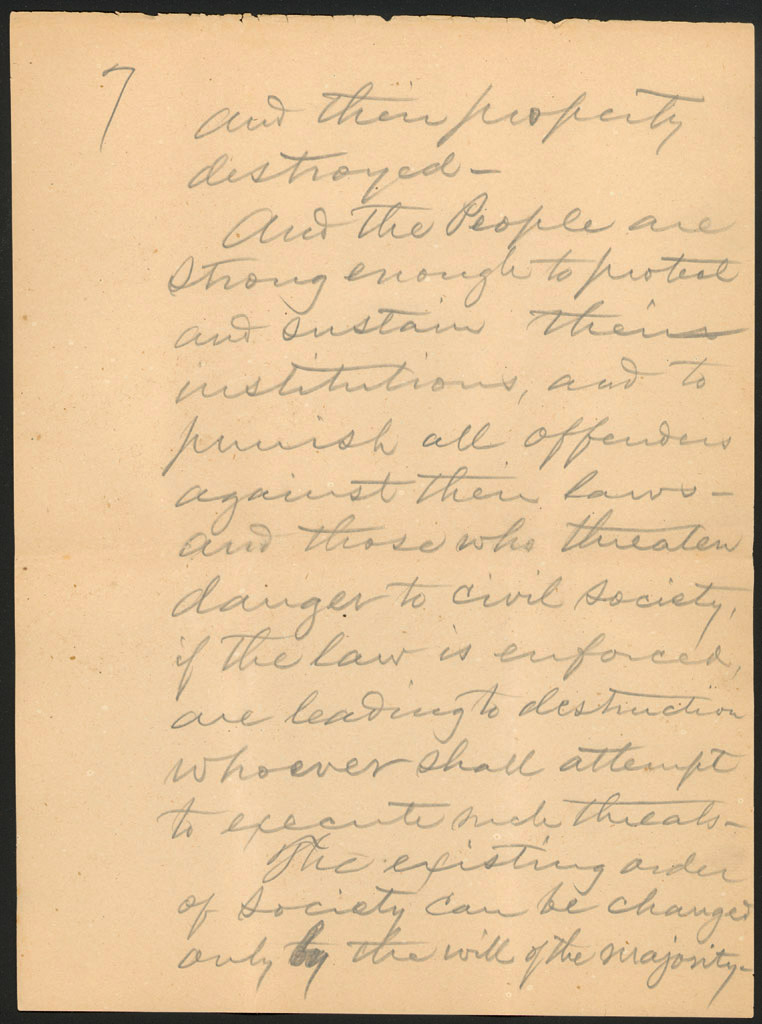 7
and their property
destroyed—
And the People are
strong enough to protect
and sustain their
institutions, and to
punish all offenders
against their laws—
and those who threaten
danger to civil society,
if the law is enforced,
are leading to destruction
whoever shall attempt
to execute such threats—
The existing order
of society can be changed
only by the will of the majority—